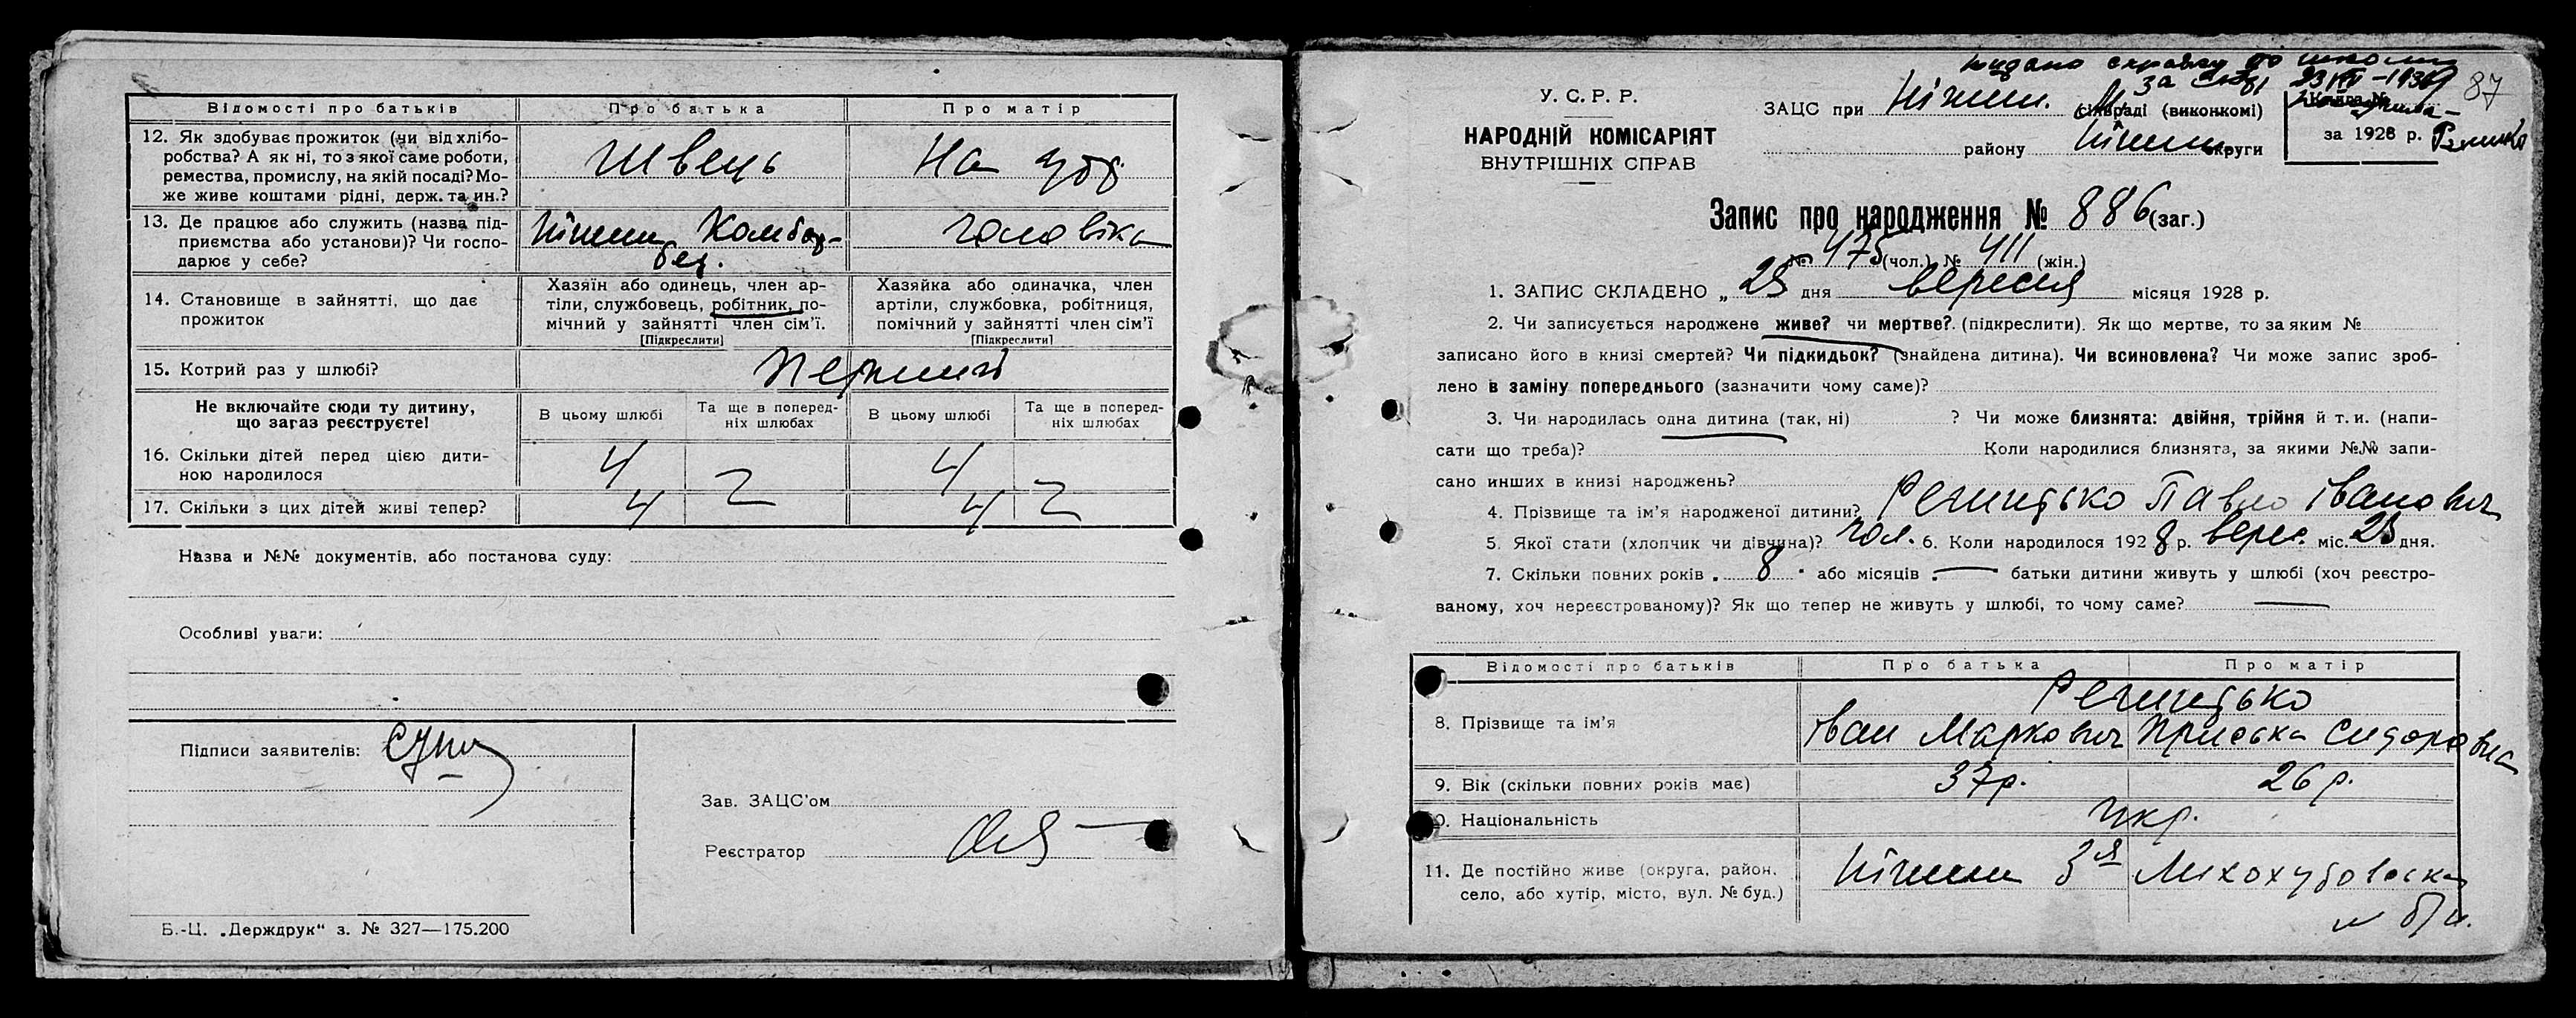 Відомості про батьків Про батька Про матір
12. Як здобуває прожиток (чи від хлібо-
робства? А як ні, то з якої саме роботи,
ремества, промислу, на якій посаді? Мо-
же живе коштами рідні, держ. та ин.?
Швець На утр.
13. Де працює або служить (назва під-
приємства або установи)? Чи госпо-
дарює у себе?
Ніжин Комбор-
без.
чоловіка
14. Становище в зайнятті, що дає
прожиток
Хазяїн або одинець, член ар-
тіли, службовець, робітник, по-
мічний у зайнятті член сім'ї.
[Підкреслити]
Хазяйка або одиначка, член
артіли, службовка, робітниця,
помічний у зайнятті член сім'ї
[Підкреслити]
15. Котрий раз у шлюбі? перший
Не включайте сюди ту дитину,
що зараз реєструєте!
В цьому шлюбі Та ще в поперед-
ніх шлюбах В цьому шлюбі Та ще в поперед-
ніх шлюбах
16. Скільки дітей перед цією дити-
ною народилося
4 4
17. Скільки з цих дітей живі тепер? 4 4
Назва и №№ документів, або постанова суду:
Особливі уваги:
Підписи заявителів:
Зав. ЗАЦС'ом
Реєстратор
Б.-Ц. „Держдрук“ з. № 327—175.200
видано справку до школи
87
У. С. Р. Р.
НАРОДНІЙ КОМІСАРІЯТ
ВНУТРІШНІХ СПРАВ
ЗАЦС при Ніжин. М. сільраді (виконкомі)
району Ніжин округи
Книга №
за 1928 р.
Запис про народження № 886 (заг.)
№ 475 (чол.) № 411 (жін.)
1. ЗАПИС СКЛАДЕНО „ 25 дня вересня місяця 1928 р.
2. Чи записується народжене живе? чи мертве?. (підкреслити). Як що мертве, то за яким №
записано його в книзі смертей? Чи підкидьок? (знайдена дитина). Чи всиновлена? Чи може запис зроб-
лено в заміну попереднього (зазначити чому саме)?
3. Чи народилась одна дитина (так, ні) ? Чи може близнята: двійня, трійня й т. и. (напи-
сати що треба)? Коли народилися близнята, за якими №№ запи-
сано инших в книзі народжень?
4. Прізвище та ім'я народженої дитини? Регицько Павло Іванович
5. Якої стати (хлопчик чи дівчина)? чол. 6. Коли народилося 1928 р. верес. міс. 23 дня.
7. Скільки повних років 8 або місяців — батьки дитини живуть у шлюбі (хоч реєстро-
ваному, хоч нереєстрованому)? Як що тепер не живуть у шлюбі, то чому саме? —
Відомості про батьків Про батька Про матір
Регицько
8. Прізвище та ім'я Іван Маркович Приська Сидоровна
9. Вік (скільки повних років має) 37 р. 26 р.
10. Національність укр.
11. Де постійно живе (округа, район,
село, або хутір, місто, вул. № буд.)
Ніжин 3я
б/н.